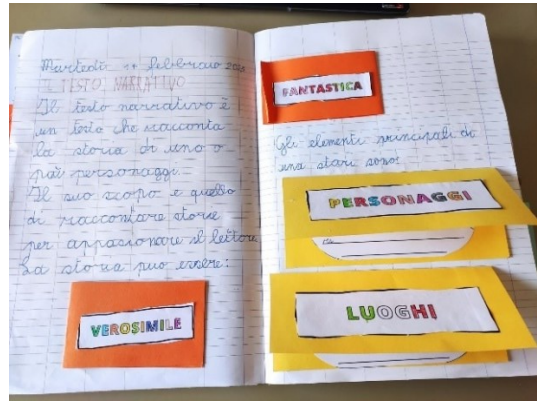 Martedì 11 febbraio
IL TESTO NARRATIVO
Il testo narrativo è
un testo che racconta
la storia di uno o
più personaggi.
Il suo scopo e quello
di raccontare storie
per appasionare il lettore
La storia può essere:
VEROSIMILE
FANTASTICA
Gli elementi principali di
una stari sono:
PERSONAGGI
LUOGHI